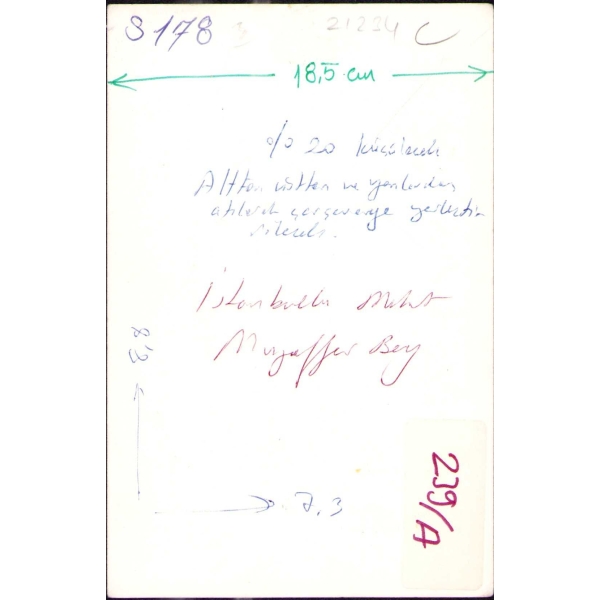 S178 21234 C
18,5 cm
% 20 küçülecek
Alttan üstten ve yanlardan
atılarak çerçeveye yerleştir
ilecek.
İstanbullu
Muzaffer Bey
8,3
7,3
239/A